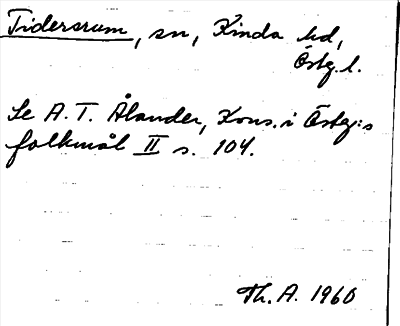 Tidersrum, sn, Kinda hd,
Östg. l.
Se A. T. Ålander, Kons. i Östg:s
folkmål II s. 104.
Th. A. 1960